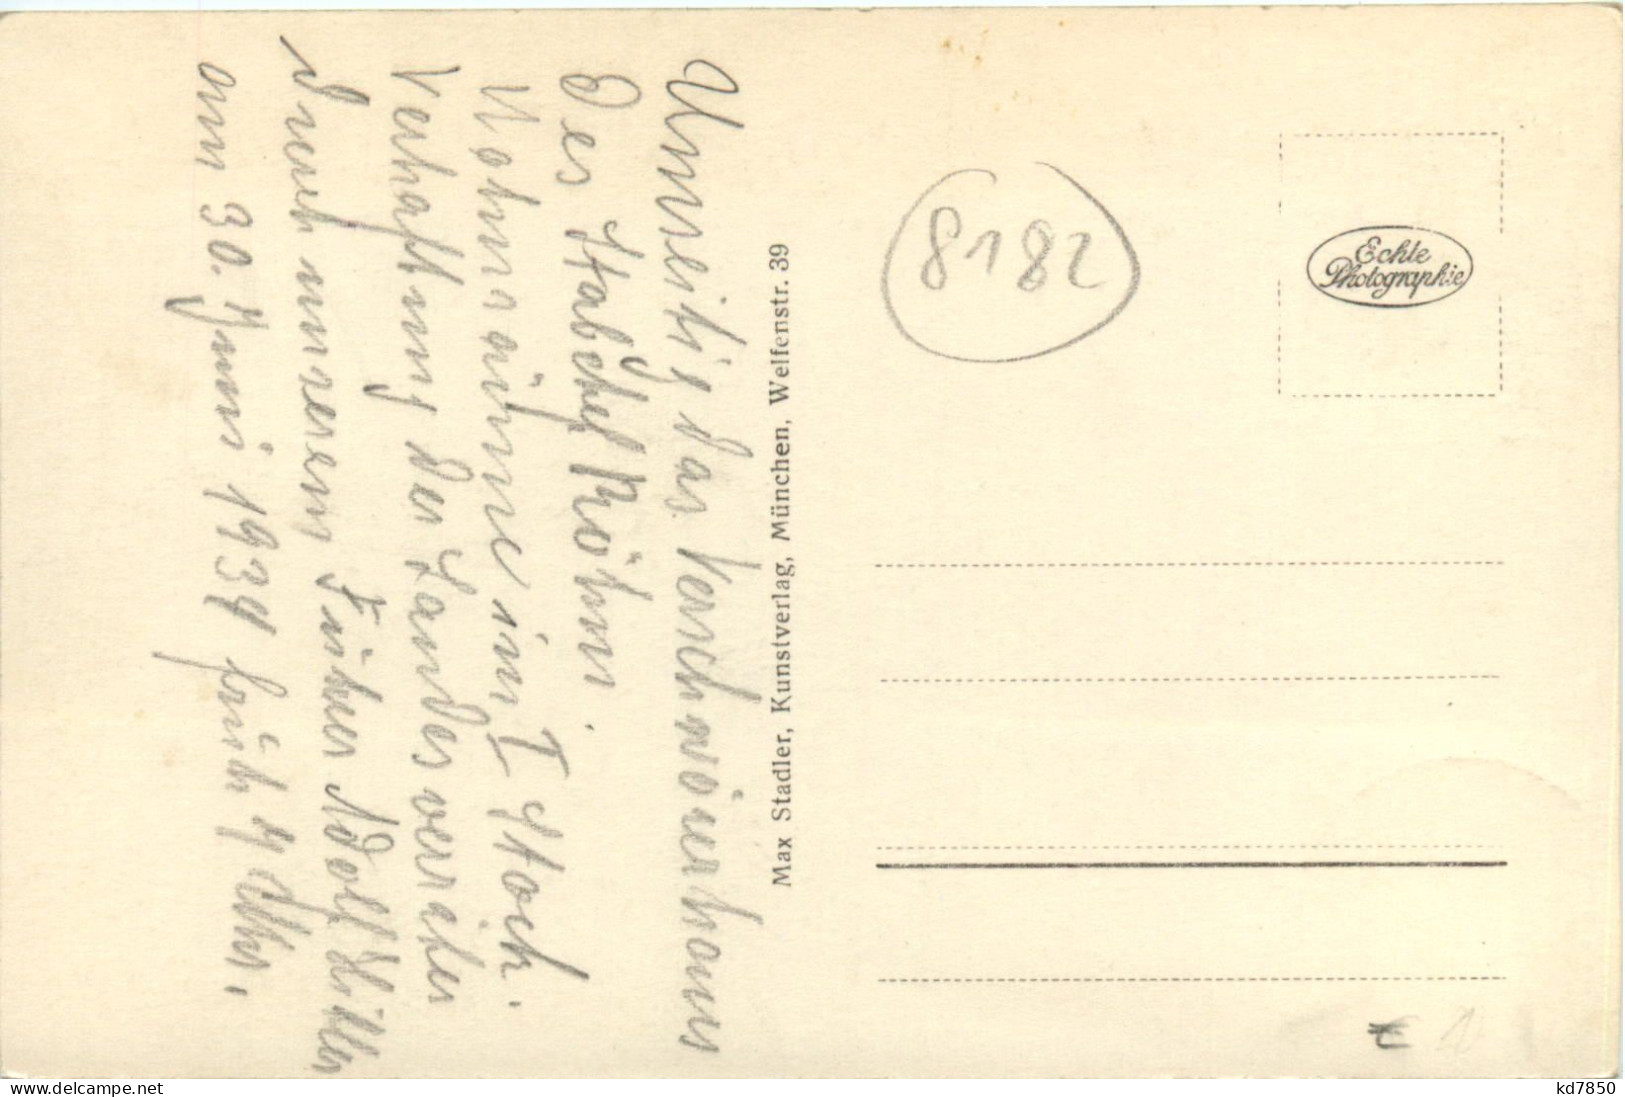 Umseitig das Verschwörerhaus
des Stabchef Röhm.
Wohnräume im I Stock.
Verhaftung der Landesverräter
durch unseren Führer Adolf Hitler
am 30. Juni 1934 früh 4 Uhr.
Max Stadler, Kunstverlag, München, Welfenstr. 39
8182
Echte
Photographie
www.delcampe.net
kd7850